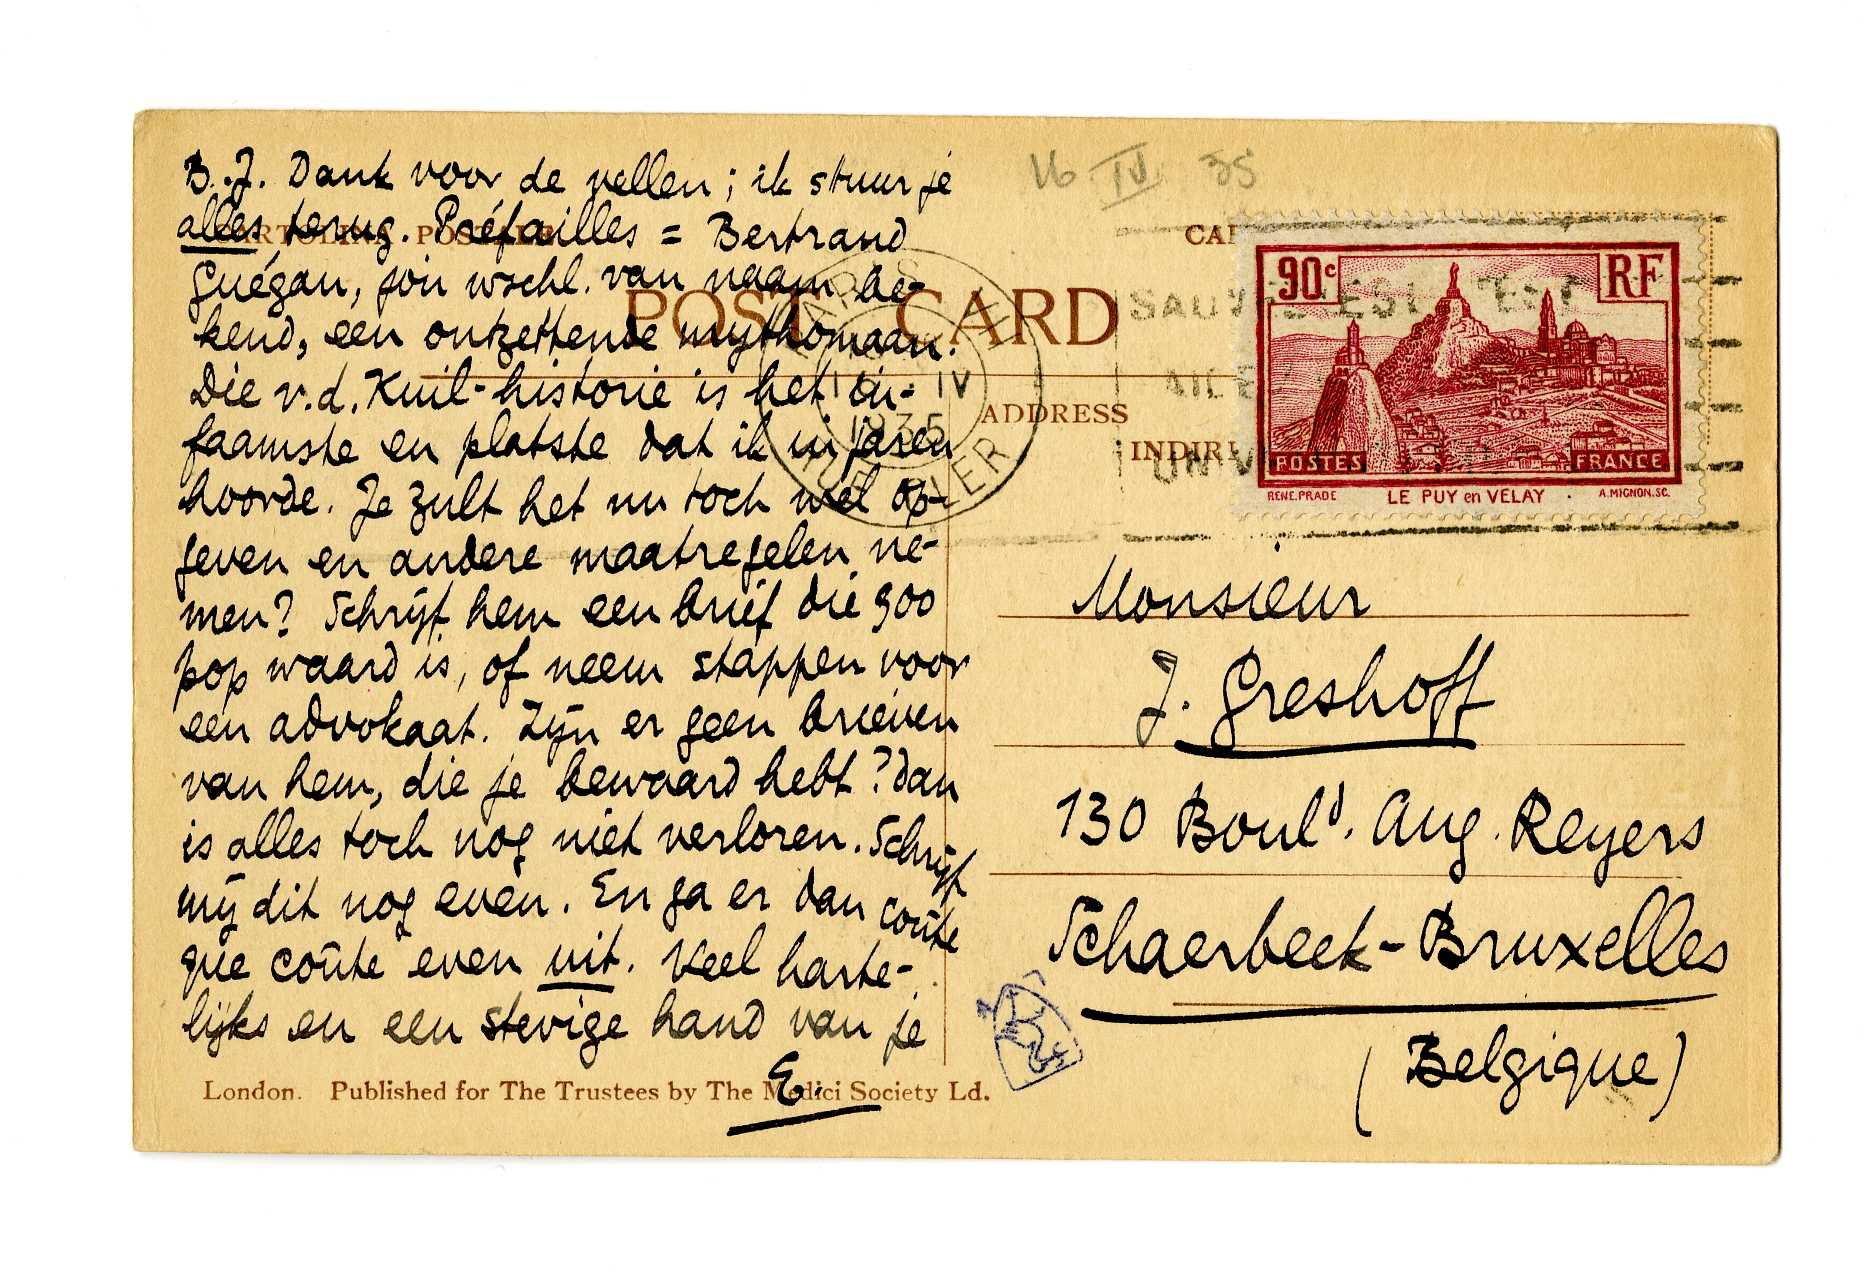 B.J. Dank voor de vellen; ik stuur je
alles terug. Préfailles = Bertrand
Guégan, jou wschl. van naam be-
kend, een ontzettende mythomaan.
Die v.d. Kuil-historie is het in-
faamste en platste dat ik in jaren
hoorde. Je zult het nu toch wel op-
geven en andere maatregelen ne-
men? Schrijf hem een brief die 900
pop waard is, of neem stappen voor
een advokaat. Zijn er geen brieven
van hem, die je bewaard hebt? Dan
is alles toch nog niet verloren. Schrijf
mij dit nog even. En ga er dan coûte
que coûte even uit. Veel harte-
lijks en een stevige hand van je
E.
London. Published for The Trustees by The Medici Society Ld.
16 IV 35
CARTOLINA POSTALE
POST CARD
ADDRESS
INDIRI
PARIS
IV
1935
90c RF
POSTES FRANCE
RENE.PRADE LE PUY en VELAY A.MIGNON.SC.
Monsieur
J. Greshoff
130 Bould. Aug. Reyers
Schaerbeek-Bruxelles
(Belgique)